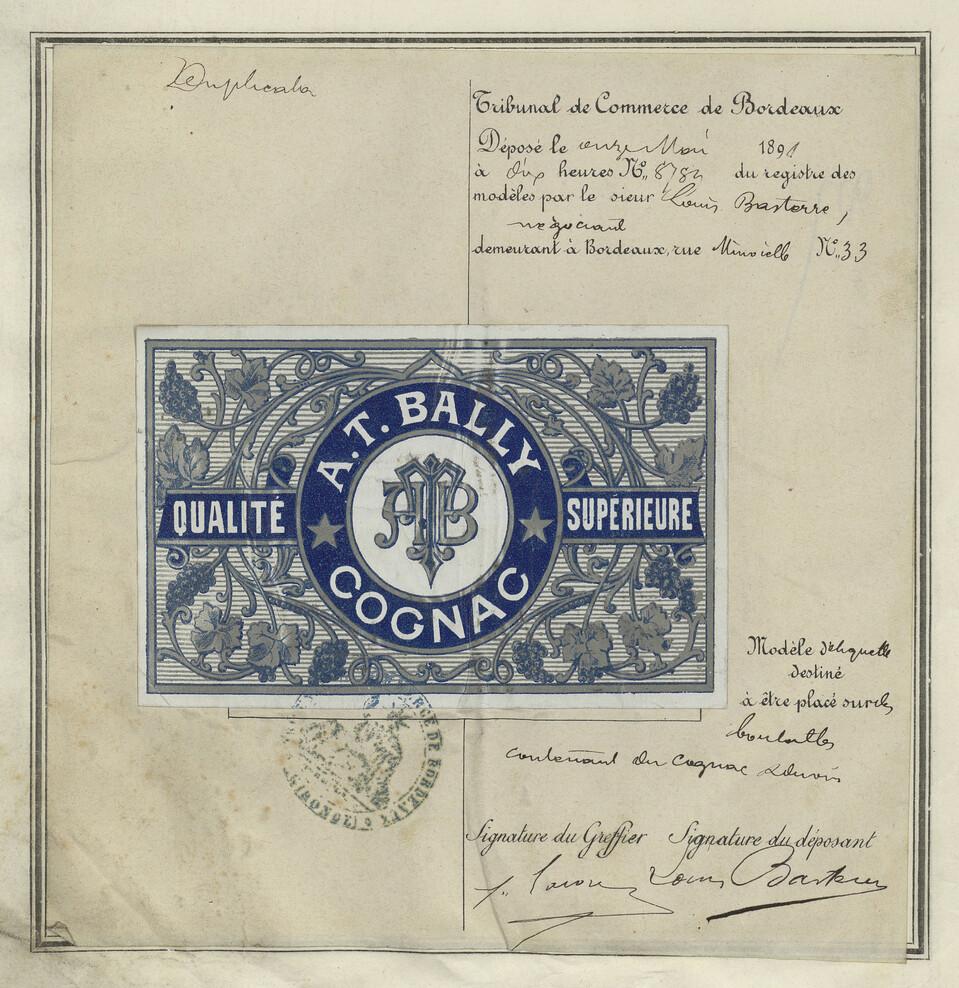 Duplicata
Tribunal de Commerce de Bordeaux
Déposé le onze Mai 1891
à dix heures N° du registre des
modèles par le sieur Louis Basterre,
négociant
demeurant à Bordeaux, rue Minvielle N° 33
A.T. BALLY
QUALITÉ
ATB
SUPÉRIEURE
COGNAC
Modèle d'étiquette
destiné
à être placé sur des
bouteilles
contenant du Cognac
DE BORDEAUX
(GIRONDE)
Signature du Greffier Signature du déposant
Louis Basterre